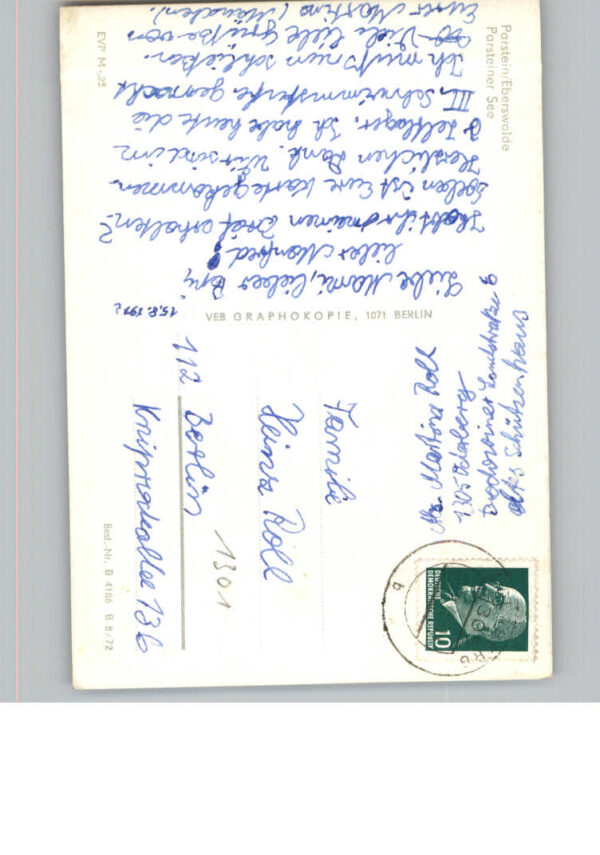 Parstein/Eberswalde
Parsteiner See
15.8.1972
Liebe Mami, lieber
lieber Manfred!
Habt ihr meinen Brief erhalten?
Soeben ist Eure Karte gekommen.
Herzlichen Dank. Wir sind im
Zeltlager. Ich habe heute die
III. Schwimmstufe gemacht
Ich muß nun schließen.
Viele liebe Grüße von
Eurer Martina
EVP M -,25
VEB GRAPHOKOPIE, 1071 BERLIN
Abs. Martina Röll
Familie
Heinz Röll
112 Berlin
Kniprodeallee 136
1301
Best.-Nr. B 4186 B 8/72
DEUTSCHE
DEMOKRATISCHE REPUBLIK
10
b